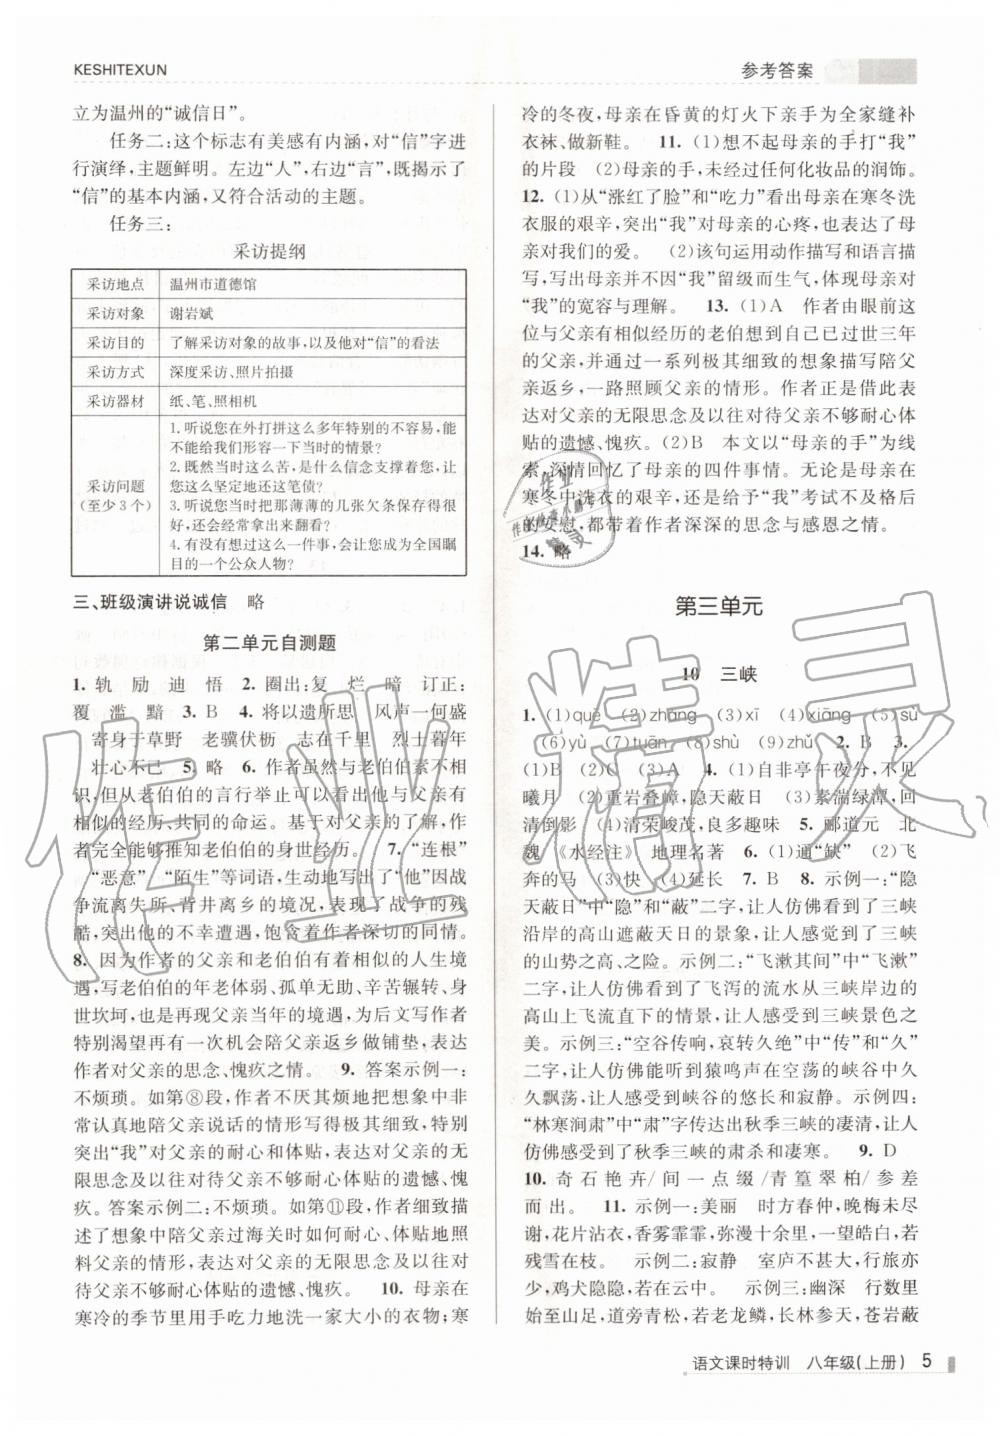 KESHITEXUN
参考答案
立为温州的“诚信日”。
任务二:这个标志有美感有内涵,对“信”字进
行演绎,主题鲜明。左边“人”,右边“言”,既揭示了
“信”的基本内涵,又符合活动的主题。
任务三:
采访提纲
采访地点 温州市道德馆
采访对象 谢岩斌
采访目的 了解采访对象的故事,以及他对“信”的看法
采访方式 深度采访、照片拍摄
采访器材 纸、笔、照相机
采访问题
(至少3个)
1.听说您在外打拼这么多年特别的不容易,能
不能给我们形容一下当时的情景?
2.既然当时这么苦,是什么信念支撑着您,让
您这么坚定地还这笔债?
3.听说您把当年薄薄的几张欠条保存得很
好,还会经常拿出来翻看?
4.有没有想过这么一件事,会让您成为全国瞩
目的一个公众人物?
三、班级演讲说诚信 略
第二单元自测题
1. 轨 励 迪 悟 2. 圈出:复 烂 暗 订正:
覆 滥 黯 3. B 4. 将以遗所思 风声一何盛
寄身于草野 老骥伏枥 志在千里 烈士暮年
壮心不已 5. 略 6. 作者虽然与老伯伯素不相
识,但从老伯伯的言行举止可以看出他与父亲有
相似的经历、共同的命运。基于对父亲的了解,作
者完全能够推知老伯伯的身世经历。 7. “连根”
“恶意”“陌生”等词语,生动地写出了“他”因战
争流离失所、背井离乡的境况,表现了战争的残
酷,突出他的不幸遭遇,饱含着作者深切的同情。
8. 因为作者的父亲和老伯伯有着相似的人生境
遇,写老伯伯的年老体弱、孤单无助、辛苦辗转、身
世坎坷,也是再现父亲当年的境遇,为后文写作者
特别渴望再有一次机会陪父亲返乡做铺垫,表达
作者对父亲的思念、愧疚之情。 9. 答案示例一:
不烦琐。如第⑧段,作者不厌其烦地把想象中非
常认真地陪父亲说话的情形写得极其细致,特别
突出“我”对父亲的耐心和体贴。表达对父亲的无
限思念以及以往对待父亲不够耐心体贴的遗憾、愧
疚。答案示例二:不烦琐。如第⑪段,作者细致描
述了想象中陪父亲过海关时如何耐心、体贴地照
料父亲的情形,表达对父亲的无限思念以及以往对
待父亲不够耐心体贴的遗憾、愧疚。 10. 母亲在
寒冷的季节里用手吃力地洗一家大小的衣物;寒
冷的冬夜,母亲在昏黄的灯火下亲手为全家缝补
衣袜、做新鞋。 11. (1)想不起母亲的手打“我”
的片段 (2)母亲的手,未经过任何化妆品的润饰。
12. (1)从“涨红了脸”和“吃力”看出母亲在寒冬洗
衣服的艰辛,突出“我”对母亲的心疼,也表达了母
亲对我们的爱。 (2)该句运用动作描写和语言描
写,写出母亲并不因“我”留级而生气,体现母亲对
“我”的宽容与理解。 13. (1)A 作者由眼前这
位与父亲有相似经历的老伯想到自己已过世三年
的父亲,并通过一系列极其细致的想象描写陪父
亲返乡,一路照顾父亲的情形。作者正是借此表
达对父亲的无限思念及以往对待父亲不够耐心体
贴的遗憾、愧疚。(2)B 本文以“母亲的手”为线
索,深情回忆了母亲的四件事情。无论是母亲在
寒冬中洗衣的艰辛,还是给予“我”考试不及格后
的安慰,都带着作者深深的思念与感恩之情。
14. 略
第三单元
10 三峡
1. (1)quē (2)zhāng (3)xī (4)xiāng (5)sù
(6)yù (7)tuān (8)shù (9)zhǔ 2. B 3.
(1)B (2)C (3)A 4. (1)自非亭午夜分,不见
曦月 (2)重岩叠嶂,隐天蔽日 (3)素湍绿潭,回
清倒影 (4)清荣峻茂,良多趣味 5. 郦道元 北
魏 《水经注》 地理名著 6. (1)通“缺” (2)飞
奔的马 (3)快 (4)延长 7. B 8. 示例一:“隐
天蔽日”中“隐”和“蔽”二字,让人仿佛看到了三峡
沿岸的高山遮蔽天日的景象,让人感受到了三峡
的山势之高、之险。示例二:“飞漱其间”中“飞漱”
二字,让人仿佛看到了飞泻的流水从三峡岸边的
高山上飞流直下的情景,让人感受到三峡的山水
之美。示例三:“空谷传响,哀转久绝”中“传”和“久”
二字,让人仿佛能听到猿鸣声在空荡的峡谷中久
久飘荡,让人感受到声音的悠长和寂静。示例四:
“林寒涧肃”中“肃”字传达出秋季三峡的凄清,让
人仿佛感受到了秋季三峡的肃杀和凄寒。 9. D
10. 奇石艳卉/间一点缀/青篁翠柏/参差
而出。 11. 示例一:美丽 时方春仲,晚梅未尽
谢,花片沾衣,香雾霏霏,弥漫十余里,一望皓白,若
残雪在枝。 示例二:寂静 室庐不甚大,行旅亦
少,鸡犬隐隐,若在云中。 示例三:幽深 行数里
始至山足,道旁青松,若老龙鳞,长林参天,苍岩蔽
语文课时特训 八年级(上册) 5
作业精灵